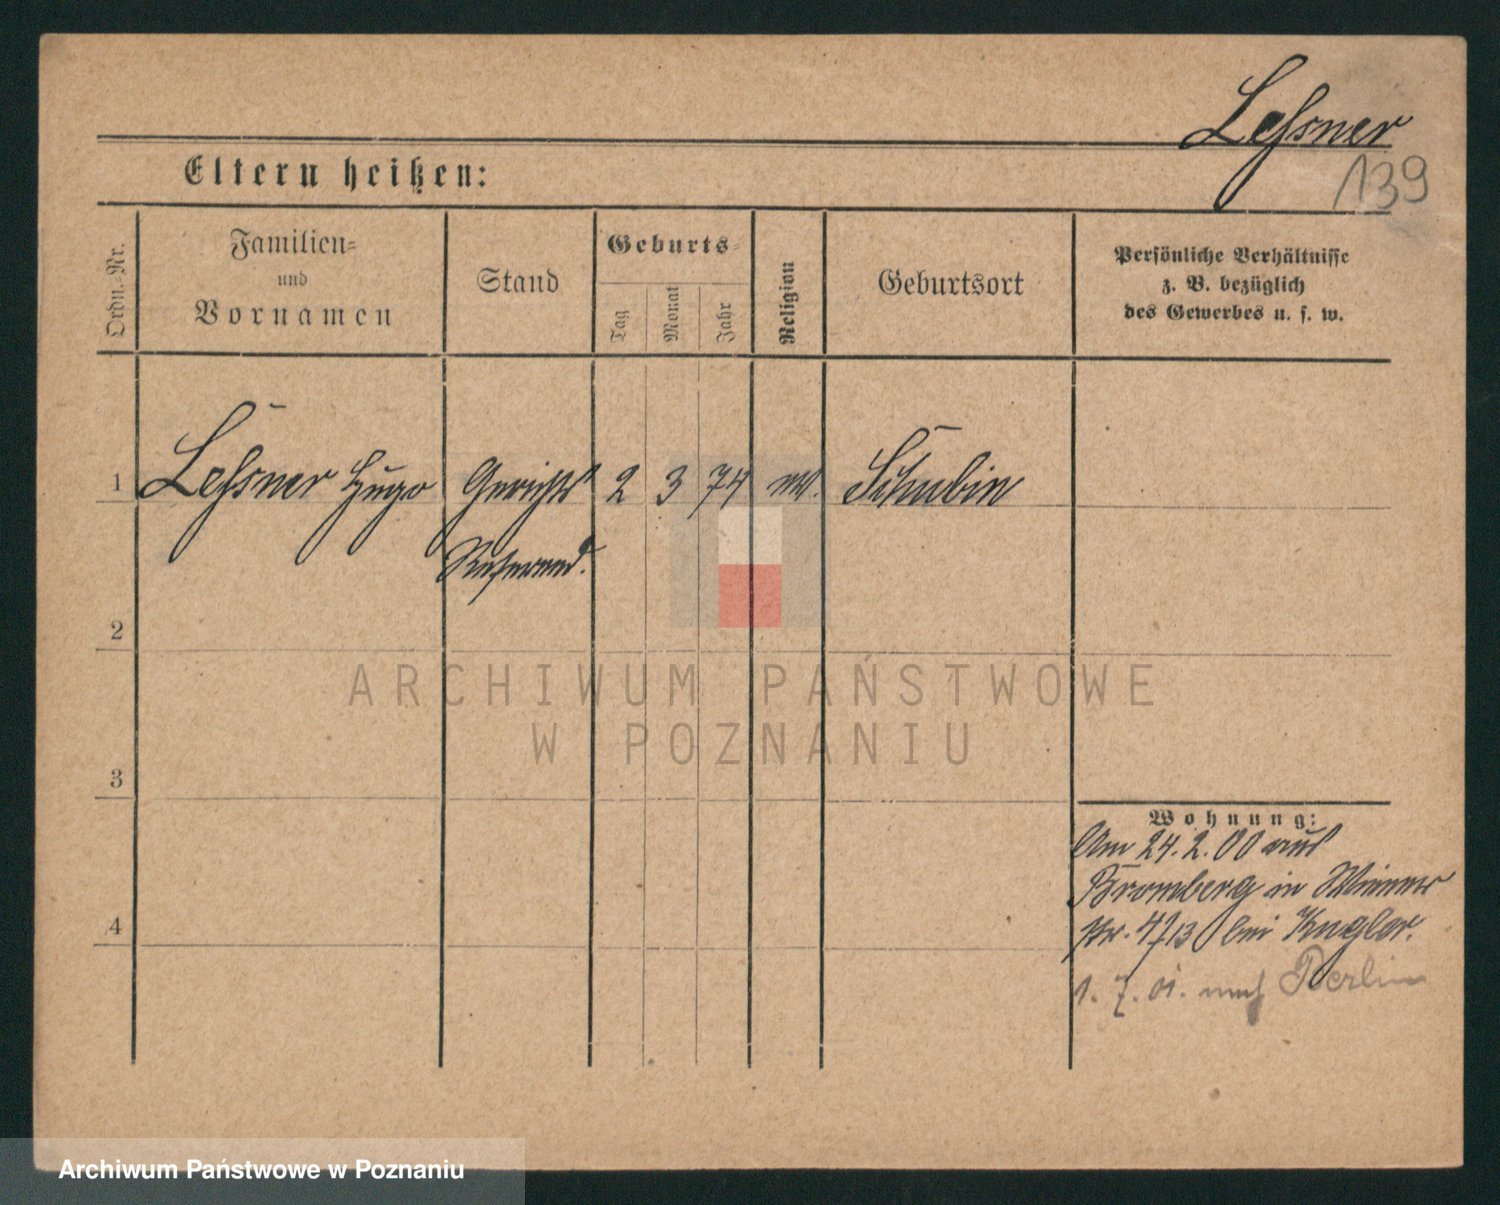 Leßner
139
Eltern heißen:
Ordn.-Nr.
Familien-
und
Vornamen
Stand
Geburts-
Tag
Monat
Jahr
Religion
Geburtsort
Persönliche Verhältnisse
z. B. bezüglich
des Gewerbes u. s. w.
1 Leßner Hugo Gerichts 2 3 74 Schubin
Referend.
2
3
4
Wohnung:
Am 24.2.00 aus
Bromberg in
str. 4/13 bei Kugler.
1. 7. 01. nach Berlin
ARCHIWUM PAŃSTWOWE
W POZNANIU
Archiwum Państwowe w Poznaniu